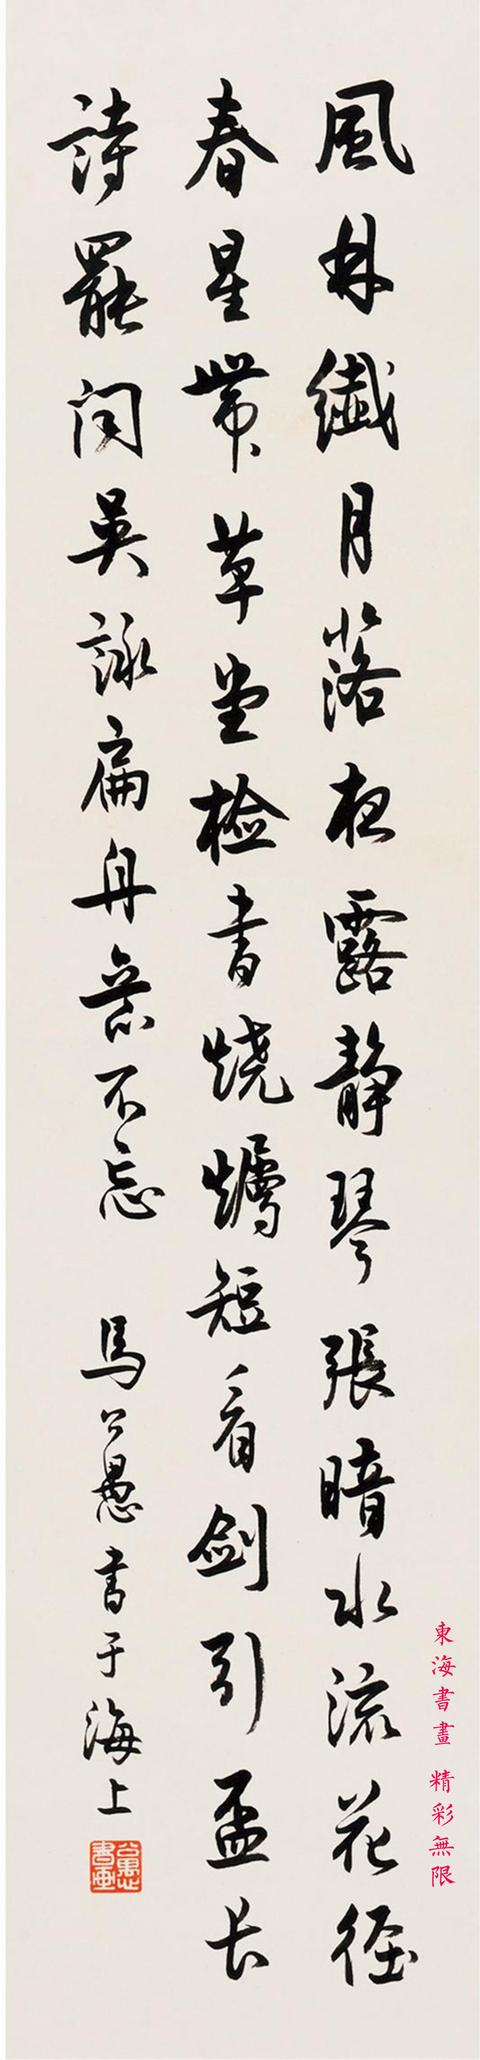 風林纖月落夜露靜琴張暗水流花徑
春星帶草堂檢書燒燭短看劍引盃長
詩罷聞吳詠扁舟意不忘
馬公愚書于海上
公愚書畫
東海書畫 精彩無限